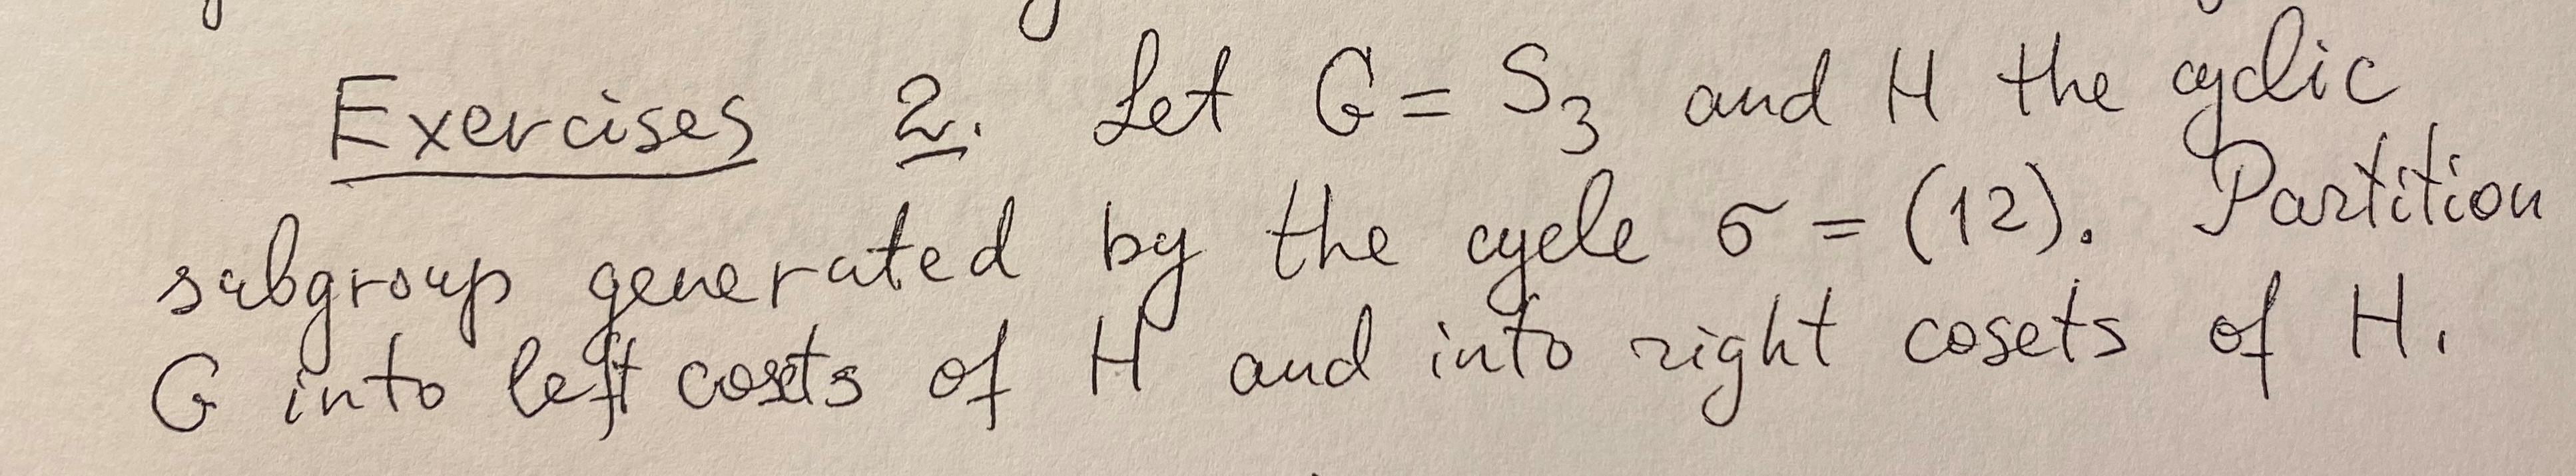 Exercises 2. Let G = S₃ and H the cyclic
subgroup generated by the cycle σ = (12). Partition
G into left cosets of H and into right cosets of H.